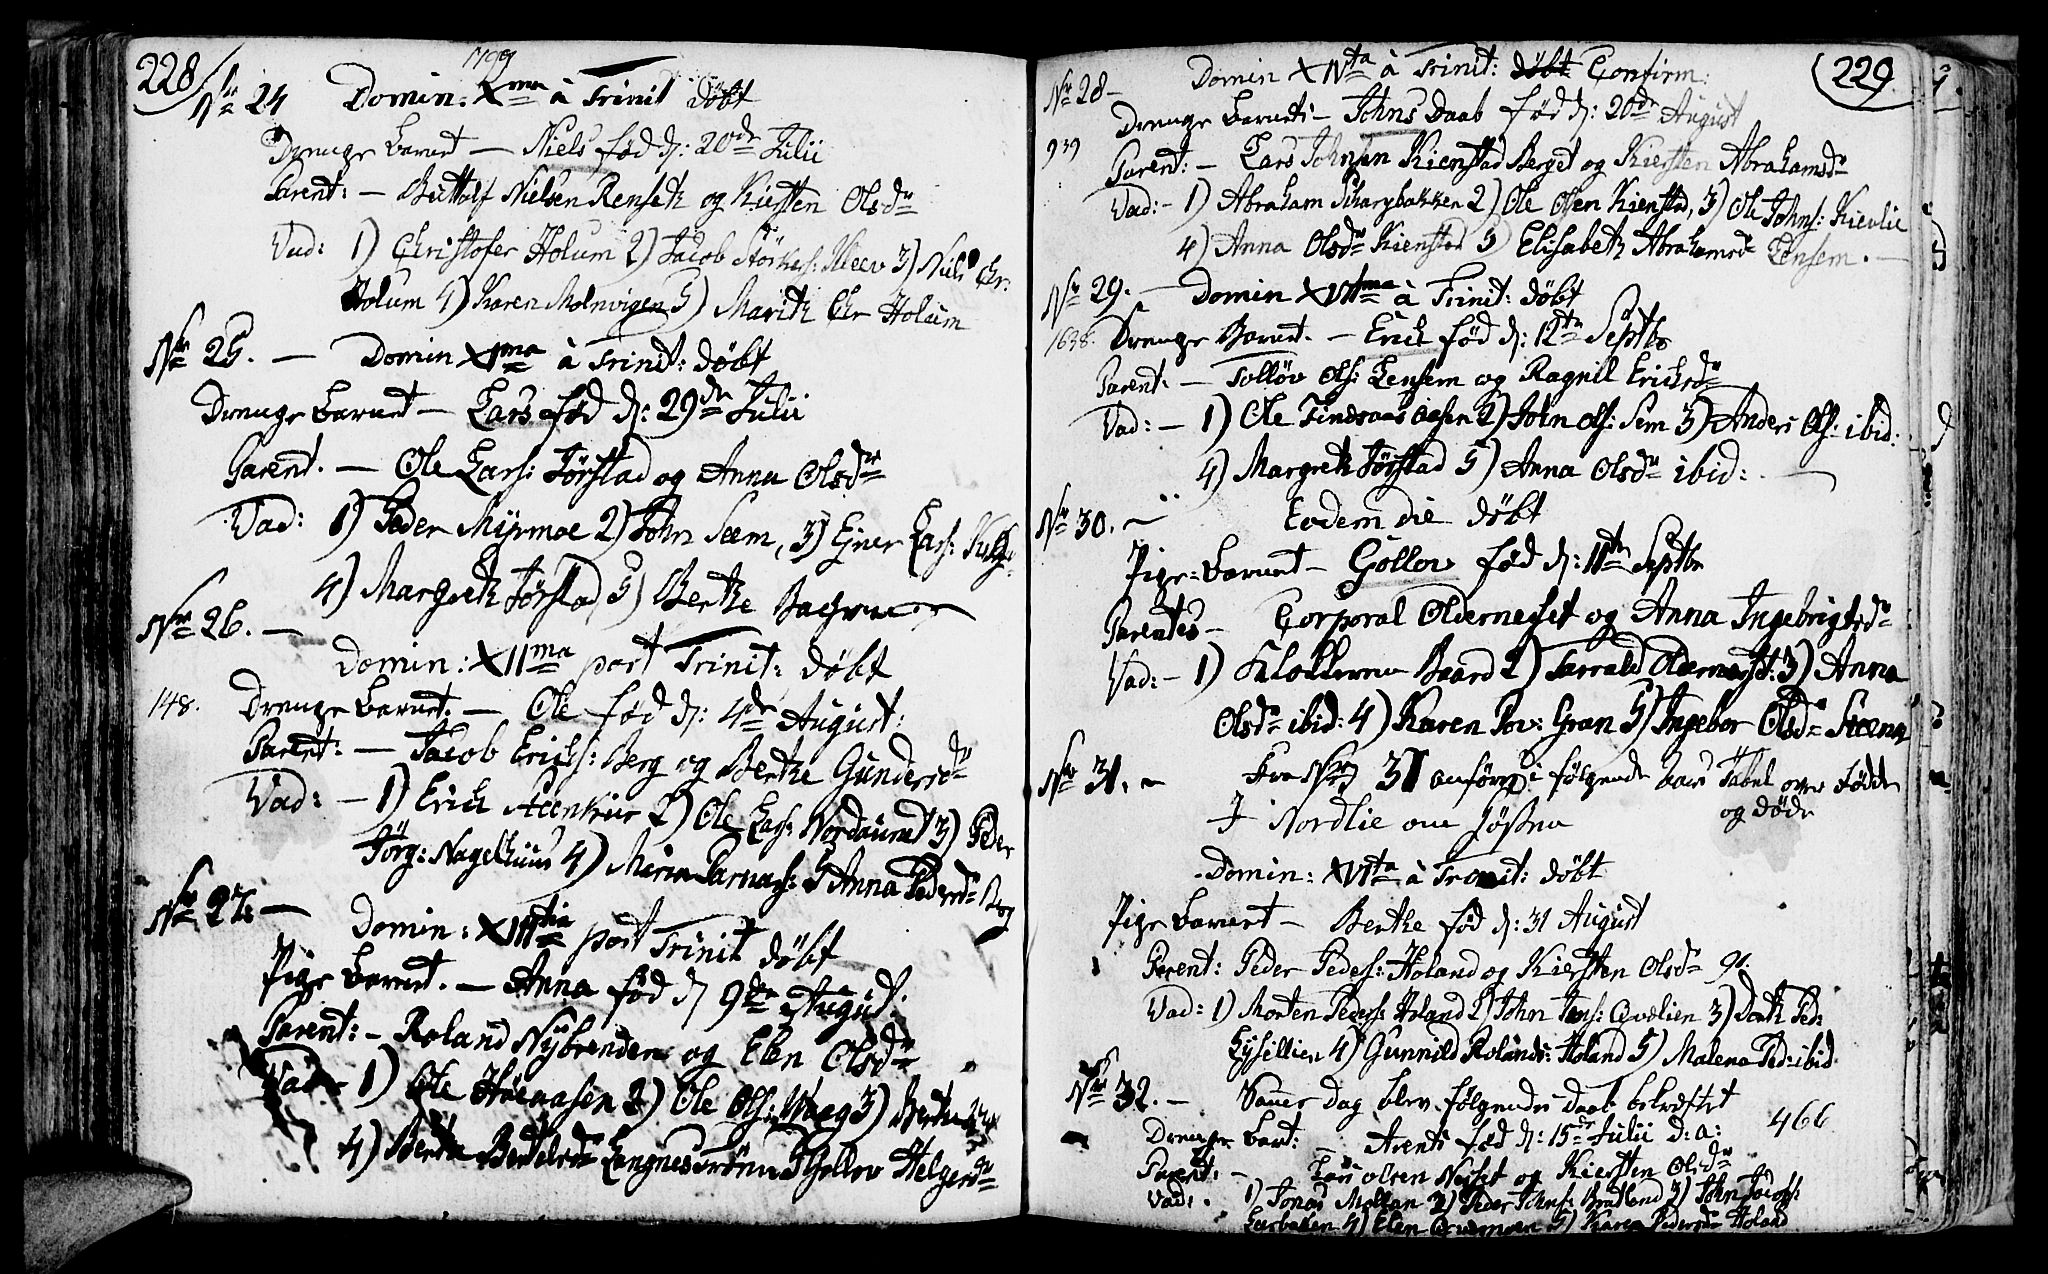 228
1799
No 24 Domin: Xma à Trinit døbt
Drenge Barnet — Niels fød d: 20de Julii
Parent: — Buttolf Nielsen Rensek og Kiersten Olsdr
Vad: 1) Christofer Holum 2) Jacob Kleev 3) Niels Chr:
Holum 4) Karen Molnvigen 5) Marith Chr Holum
No 25. — Domin XIma à Trinit: døbt
Drenge Barnet — Lars fød d: 29de Julii
Parent. — Ole Lars:Førstad og Anna Olsdr
Vad: 1) Peder Myrmoe 2) John Seem, 3) Ejner Lars:
4) Margreth Førstad 5) Berthe
No 26. —
Domin: XIIma post Trinit: døbt
148. Drenge Barnet. — Ole fød d: 4de August:
Parent: — Jacob Erichs: Berg og Berthe Gundersdr
Vad: — 1) Erich Steenkier 2) Ole Lars: Nordaunet 3) Peder
Jörg: Nagelhuus 4) Maria 5 Anna Pedersdr Berg
No 27. —
Domin: XIIItia post Trinit døbt
Pige Barnet. — Anna fød d 9de August.
Parent: — Roland Nybrenden og Elen Olsdr
Vad — 1) Ole 2) Ole Ols: Waag 3)
4) Berthe Bertelsdr 5 Gollov Helgesdr
229
No 28 — Domin XIVta à Trinit: døbt Confirm:
Drenge Barnets — Johns Daab fød d: 20de August
939 Parent: — Lars Johnsen Kienstad Berget og Kiersten Abrahamsdr
Vad: — 1) Abraham 2) Ole Olsen Kienstad, 3) Ole Johns: Kievlie
4) Anna Olsdr Kienstad 5 Elisabeth Abrahamsdr Lensem. —
No 29. — Domin XVIIma à Trinit: døbt
1638. Drenge Barnet. — Erich fød d: 12te Septbr
Parent: — Tolløv Ols: Lensem og Ragnil Erichsdr
Vad: — 1) Ole 2) John Ols: Sem 3) Anders Ols: ibid:
4) Margreth Førstad 5) Anna Olsdr ibid:
No 30. — Eodem die døbt
Pige-Barnet — Gollov fød d: 11te Septbr
Parentes — Corporal Oldernesset og Anna Ingebrigtsdr
Vad: — 1) Klokkeren Baard 2) Oldernesset: 3) Anna
Olsdr ibid: 4) Karen Pov: Gran 5) Ingebor Olsdr
No 31. — Fra No 31 anføres i følgende Aars Tabel over fødde
og døde
I Nordlie
Domin: XVIta à Trinit: døbt
Pige Barnet — Berthe fød d: 31 August
Parent: Peder Peders: Holand og Kiersten Olsdr 91.
Vad: 1) Morten Peders: Holand 2) John Jens: Qvelien 3) Dorth Ped:
4) Gunnild Rolands: Holand 5) Malena Ped: ibid
No 32. — Samme dag blev følgende daab bekræftet
Drenge Barn: — Arents fød d: 15de Julii d: a: 466
Parent: — Lars Olsen Nesset og Kiersten Olsdr
Vad: . 1) Jonas Mellan 2) Peder Johns: 3) John Jacobs:
4) Elen 5) Karen Pedersdr Holand